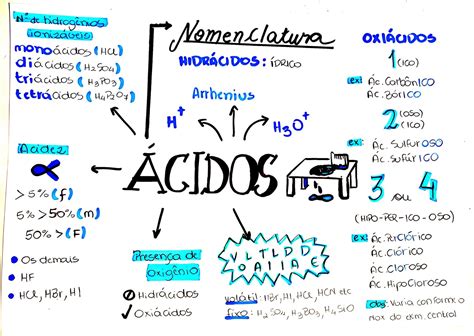 Nº de hidrogênios
ionizáveis
monoácidos (HCl)
diácidos (H2SO4)
triácidos (H3PO3)
tetrácidos (H4P2O7)
Nomenclatura
HIDRÁCIDOS: ÍDRICO
Arrhenius
H+
H3O+
OXIÁCIDOS
1 (ICO)
ex: Ác. CarbônICO
Ác. BórICO
2 (OSO)
(ICO)
ex: Ác. SulfurOSO
Ác. SulfúrICO
3 ou 4
(HIPO-PER-ICO-OSO)
ex: Ác. PerClórICO
Ác. Clórico
Ác. Cloroso
Ác. HipoCloroso
obs: Varia conforme o
nox do elem. central
Acidez
α
> 5% (f)
5% > 50% (m)
50% > (F)
Os demais
HF
HCl, HBr, HI
ÁCIDOS
Presença de
oxigênio
Hidrácidos
Oxiácidos
VLTLDD
OAIIAE
volátil: HBr, HI, HCl, HCN etc
fixo: H2SO4, H3BO3, H4SiO